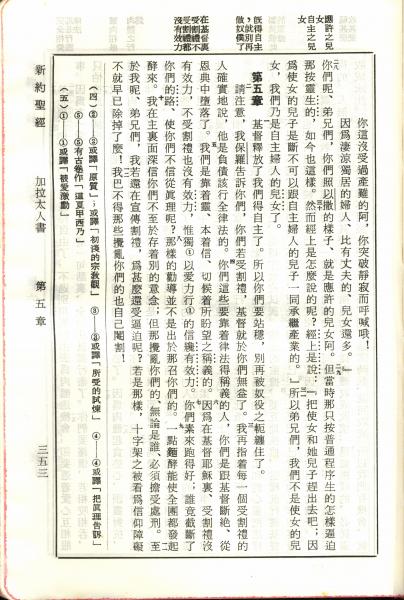 應許之兒
女、自主之兒
女
旣得自主
,就別再
做奴僕了
在基督裏
受割禮不
受割禮都
沒有效力
你這沒受過產難的阿,你突破靜寂而呼喊哦!
因爲凄涼獨居的婦人、比有丈夫的、兒女還多。』
你們呢、弟兄們,你們照以撒的樣子、就是應許的兒女阿。但當時那只按普通程序生的怎樣逼迫
那按靈生的,如今也這樣。然而經上是怎麼說的呢?經上是說:『把使女和她兒子趕出去吧;因
爲使女的兒子是斷不可以跟自主婦人的兒子一同承繼產業的。』所以弟兄們,我們不是使女的兒
女,我們乃是自主婦人的兒女了。
第五章 基督釋放了我們得自主了。所以你們要站穩,別再被奴役之軛纏住了。
請注意,我保羅告訴你們,你們若受割禮,基督就於你們無益了。我再指着每一個受割禮的
人確實地說,他是負債該行全律法的。你們這些要靠着律法得稱義的人,你們是跟基督斷絕、從
恩典中墮落了。我們是靠着靈、本着信、切候着所盼望之稱義的。因爲在基督耶穌裏、受割禮沒
有效力,不受割禮也沒有效力,惟獨①以愛力行①的信纔有效力。你們素來跑得好;誰竟截斷了
你們的路、使你們不信從眞理呢?那樣的勸導並不是出於那召你們的。一點麵酵能使全團都發起
酵來。我在主裏面深信你們不至於存着別的意念;但那攪亂你們的、無論是誰、必須擔受處刑。至
於我呢、弟兄們,我若還在宣傳割禮、爲甚麼還受逼迫呢?若是那樣、十字架之被看爲信仰障礙
不就早已除掉了麼!我巴不得那些攪亂你們的也自己閹割!
(四)②—②或譯「原質」;或譯「初淺的宗教觀」 ③—③或譯「所受的試煉」 ④—④或譯「把眞理吿訴」
⑤—⑤有古卷作「這夏甲西乃」
(五)①—①或譯「被愛激動」
新約聖經 加拉太人書 第五章 三五三